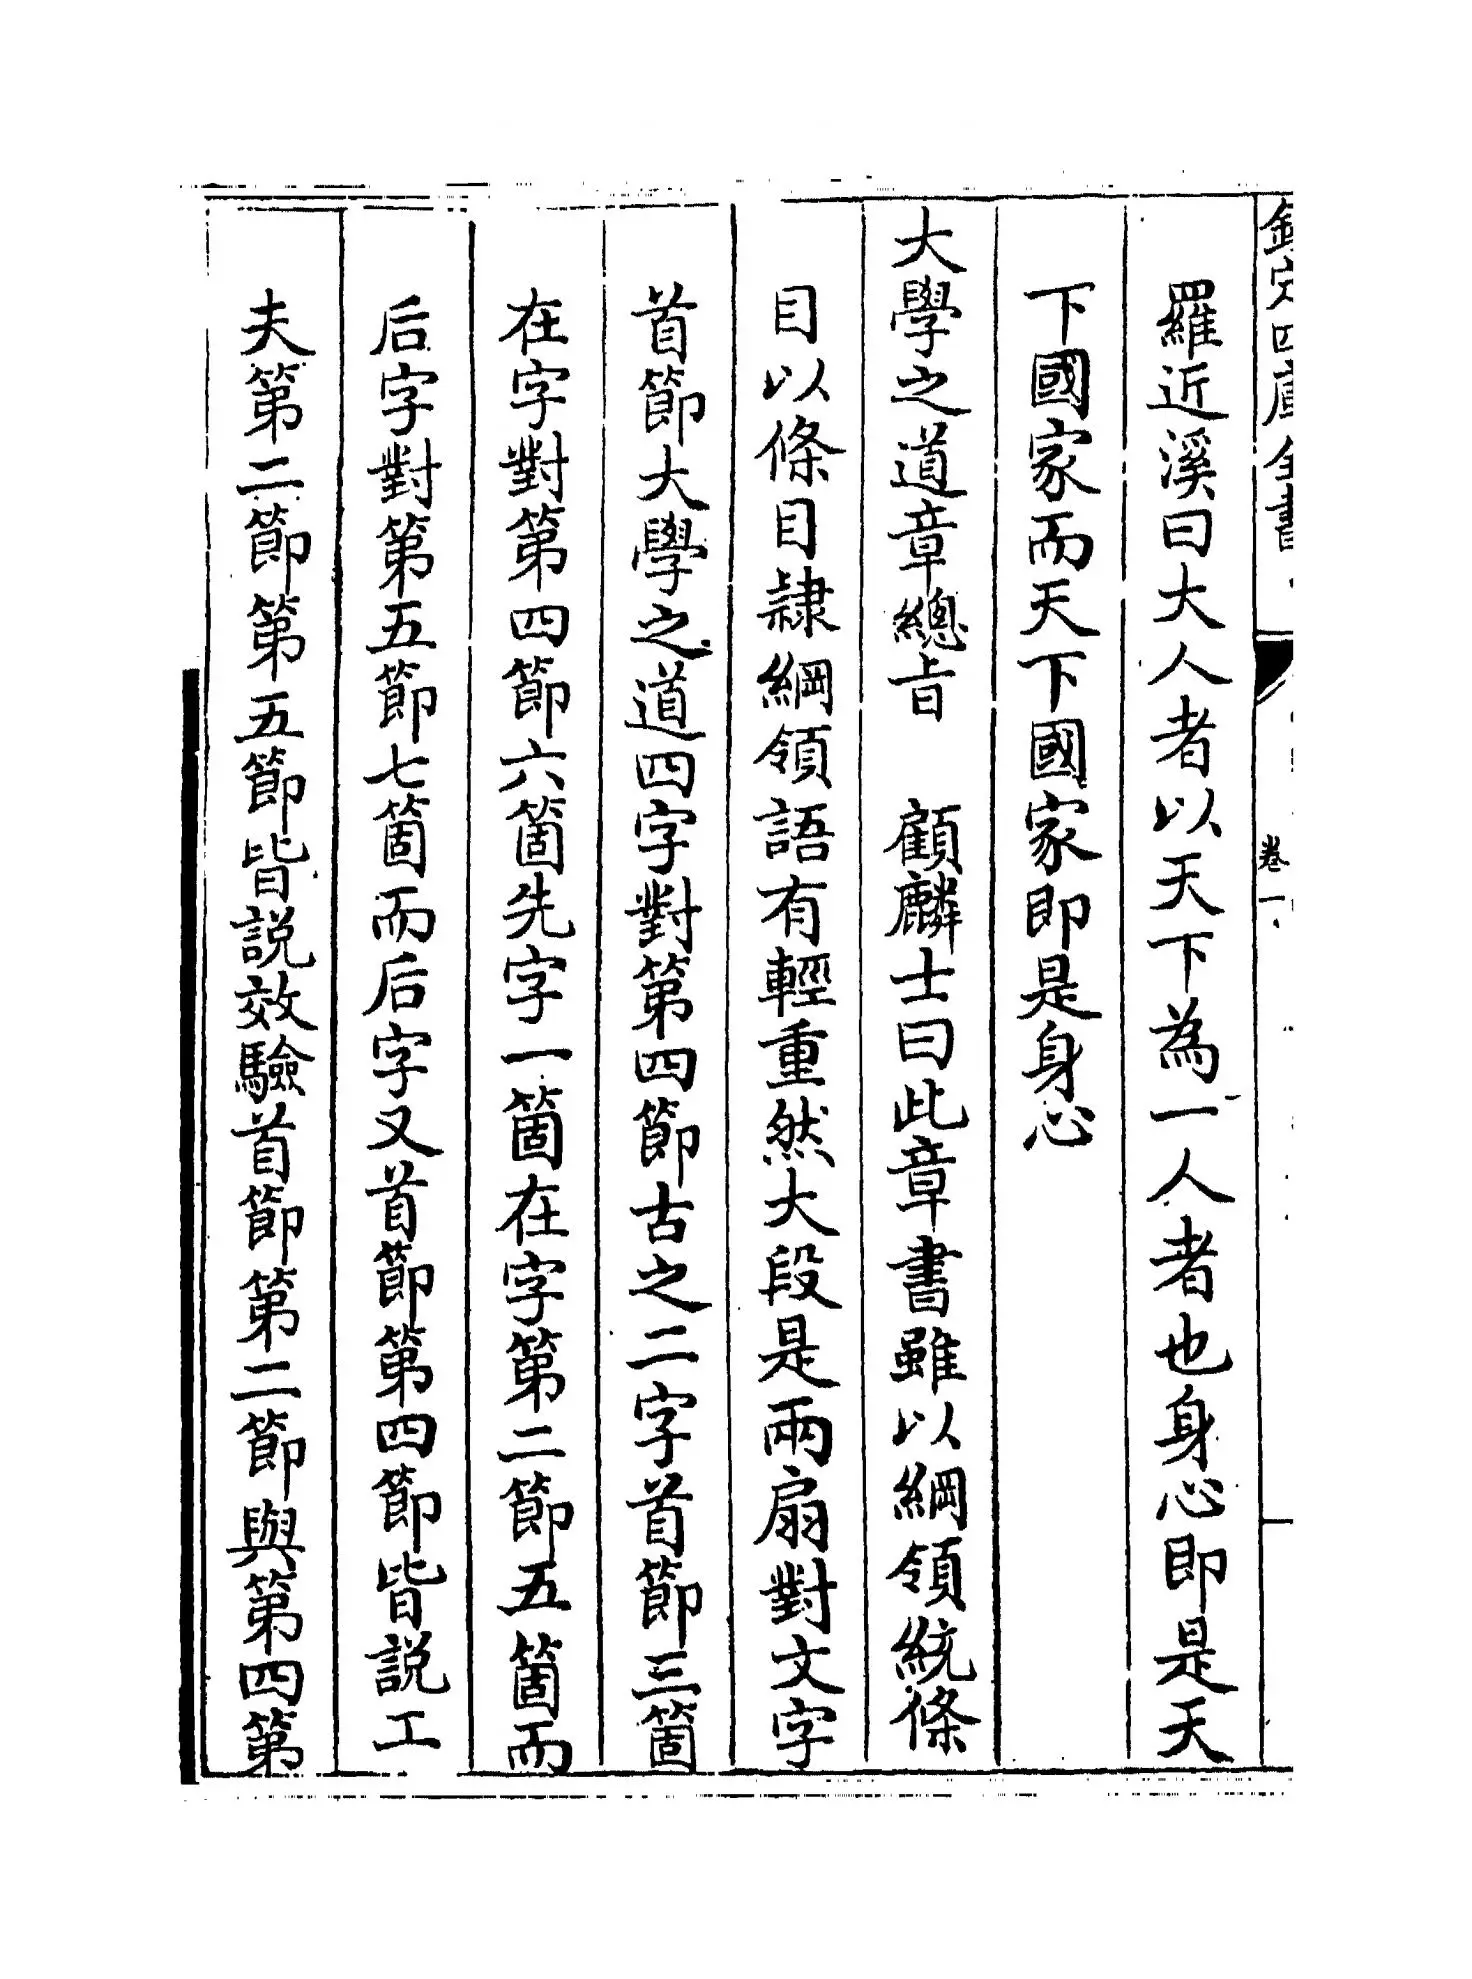 欽定四庫全書
卷一
羅近溪曰大人者以天下為一人者也身心即是天
下國家而天下國家即是身心
大學之道章總旨　顧麟士曰此章書雖以綱領統條
目以條目隷綱領語有輕重然大段是兩扇對文字
首節大學之道四字對第四節古之二字首節三箇
在字對第四節六箇先字一箇在字第二節五箇而
后字對第五節七箇而后字又首節第四節皆說工
夫第二節第五節皆說效驗首節第二節與第四第